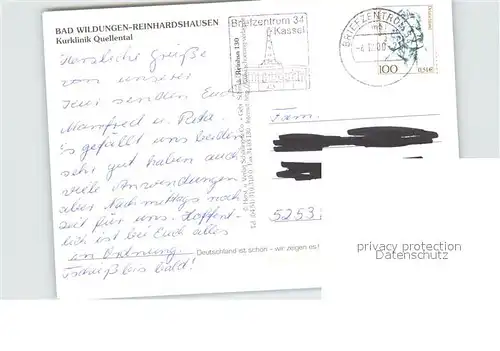 BAD WILDUNGEN-REINHARDSHAUSEN
Kurklinik Quellental
Herzliche Grüße
von unserer
Kur senden Euch
Manfred u. Rita.
Es gefällt uns beiden
sehr gut haben auch
viele Anwendungen
aber Nachmittags noch
Zeit für uns. Hoffent-
lich ist bei Euch alles
in Ordnung
Tschüß bis bald!
Deutschland ist schön – wir zeigen es!
Briefzentrum 34
Kassel
BRIEFZENTRUM
100
0,51€
Deutschland
Fam.
5253
privacy protection
Datenschutz